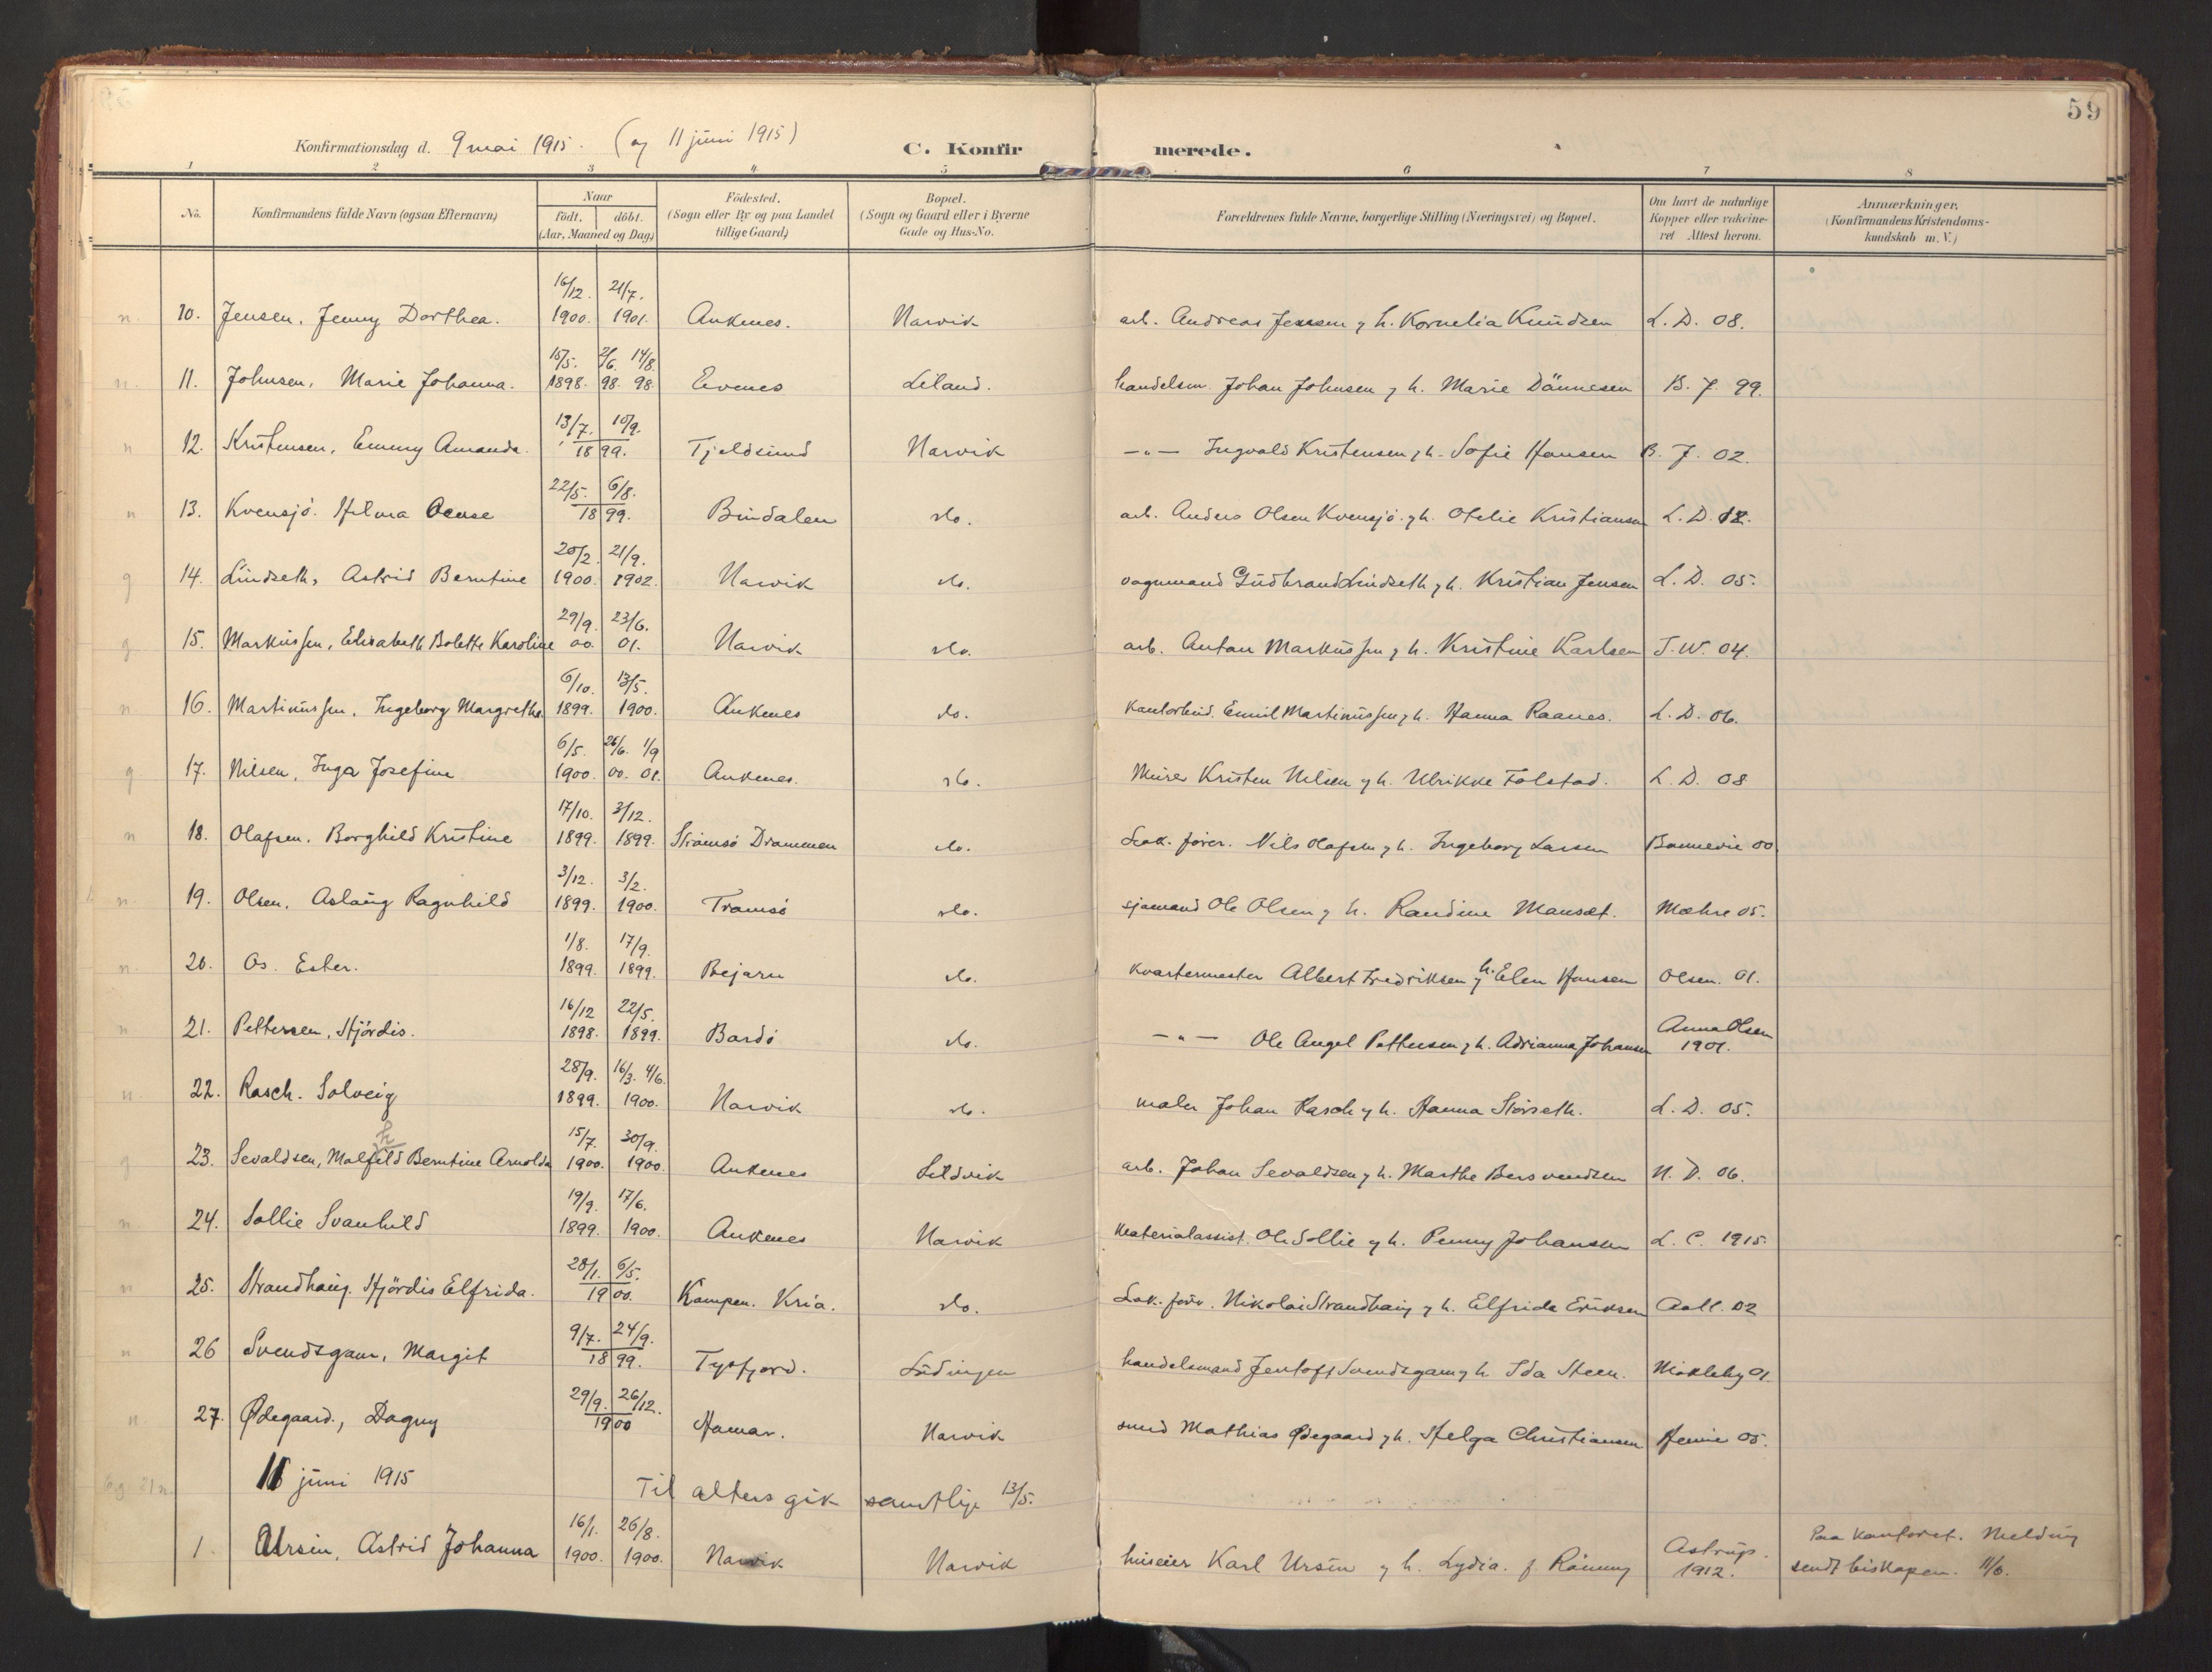 59
Konfirmationsdag d. 9 mai 1915. (og 11 juni 1915)
C. Konfirmerede.
1 2 3 4 5 6 7 8
No.
Konfirmandens fulde Navn (ogsaa Efternavn)
Naar
födt. döbt.
(Aar, Maaned og Dag)
Födested.
(Sogn eller By og paa Landet
tillige Gaard)
Bopæl.
(Sogn og Gaard eller i Byerne
Gade og Hus-No.
Forældrenes fulde Navne, borgerlige Stilling (Næringsvei) og Bopæl.
Om havt de naturlige
Kopper eller vakcine-
ret Attest herom.
Anmærkninger,
(Konfirmandens Kristendoms-
kundskab m.V.)
n. 10. Jensen, Jenny Dorthea. 16/12. 1900. 21/7. 1901. Ankenes. Narvik arb. Andreas Jensen og h. Kornelia Knudsen L. D. 08.
n. 11. Johnsen, Marie Johanna. 15/5. 1898. 2/6. 98. 14/8. 98. Evenes Leland. handelsm. Johan Johnsen og h. Marie Dännesen B. J. 99.
n 12. Kristensen, Emmy Amanda. 13/7. 10/9. 1899. Tjeldsund Narvik —"— Ingvald Kristensen og h. Sofie Hansen B. J. 02.
n 13. Kvensjö. Hilma Aense 22/5. 6/8. 1899. Bindalen do. arb. Anders Olsen Kvensjö og h. Otelie Kristiansen L. D. 12.
g 14. Lindseth, Astrid Berntine 20/2. 1900. 21/9. 1902. Narvik do. vognmand Gudbrand Lindseth og h. Kristian Jensen L. D. 05.
g 15. Markussen, Elisabeth Bolette Karoline 29/9. 00. 23/6. 01. Narvik do. arb. Anton Markussen og h. Kristine Karlsen J. W. 04.
n. 16. Martinussen, Ingeborg Margrethe 6/10. 1899. 13/5. 1900. Ankenes do. kontorbud. Emil Martinussen og h. Hanna Raanes. L. D. 06.
g 17. Nilsen, Inga Josefine 6/5. 1900. 26/6. 00. 1/9 01. Ankenes. do. Murer Kristen Nilsen og h. Ulrikke Tolstad. L. D. 08
n 18. Olafsen, Borghild Kristine 17/10. 1899. 3/12. 1899. Strømsö Drammen do. Lok. förer. Nils Olafsen og h. Ingeborg Larsen Bonnevie 00
n. 19. Olsen, Aslaug Ragnhild 3/12. 1899. 3/2. 1900. Tromsö do. sjömand Ole Olsen og h. Randine Manset. Mæhre 05.
n. 20. Os. Ester. 1/8. 1899. 17/9. 1899. Bejarn do. kvartermester Albert Fredriksen og h. Elen Hansen Olsen. 01.
n 21. Pettersen, Hjördis. 16/12 1898. 22/5. 1899. Bardö do. —"— Ole Angel Pettersen og h. Adrianna Johansen Anna Olsen 1901.
n. 22. Rasch. Solveig 28/9. 1899. 16/3. 4/6. 1900. Narvik do. maler Johan Rasch og h. Hanna Störseth. L. D. 05.
g 23. Sevaldsen, Malfild h Berntine Arnolda 15/7. 1900. 30/9. 1900. Ankenes Sildvik arb. Johan Sevaldsen og h. Marthe Bersvendsen N. D. 06.
n 24. Sollie Svanhild 19/9. 1899. 17/6. 1900. Ankenes Narvik Materialassist. Ole Sollie og h. Penny Johansen L. C. 1915.
n 25. Strandhaug. Hjördis Elfrida. 28/1. 6/5. 1900. Kampen. Kria. do. Lok. förer. Nikolai Strandhaug og h. Elfrida Eriksen Aall. 02
n 26 Svendsgam, Margit 9/7. 24/9. 1899. Tysfjord. Lödingen handelsmand Jentoft Svendsgam og h. Ida Steen. Nökleby 01.
n. 27. Ødegaard, Dagny 29/9. 26/12. 1900 Hamar. Narvik smed Mathias Ødegaard og h. Helga Christiansen Hennie 05.
6g. 21n. 11 juni 1915 Til alters gik samtlige 13/5.
1. Ursin, Astrid Johanna 16/1. 1900. 26/8. 1900. Narvik Narvik huseier Karl Ursin og h. Lydia f. Rönning Astrup. 1912. Paa kontoret. Melding
sendt biskopen. 11/6.